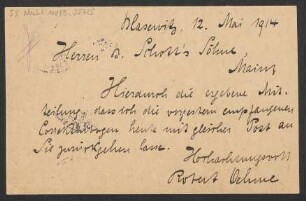 Blasewitz, 12. Mai 1914
Herren B. Schott's Söhne,
Mainz
Hierdurch die ergebene Mit-
teilung, dass ich die vorgestern empfangenen
Correkturbogen heute mit gleicher Post an
Sie zurückgehen lasse.
Hochachtungsvoll
Robert Oehme